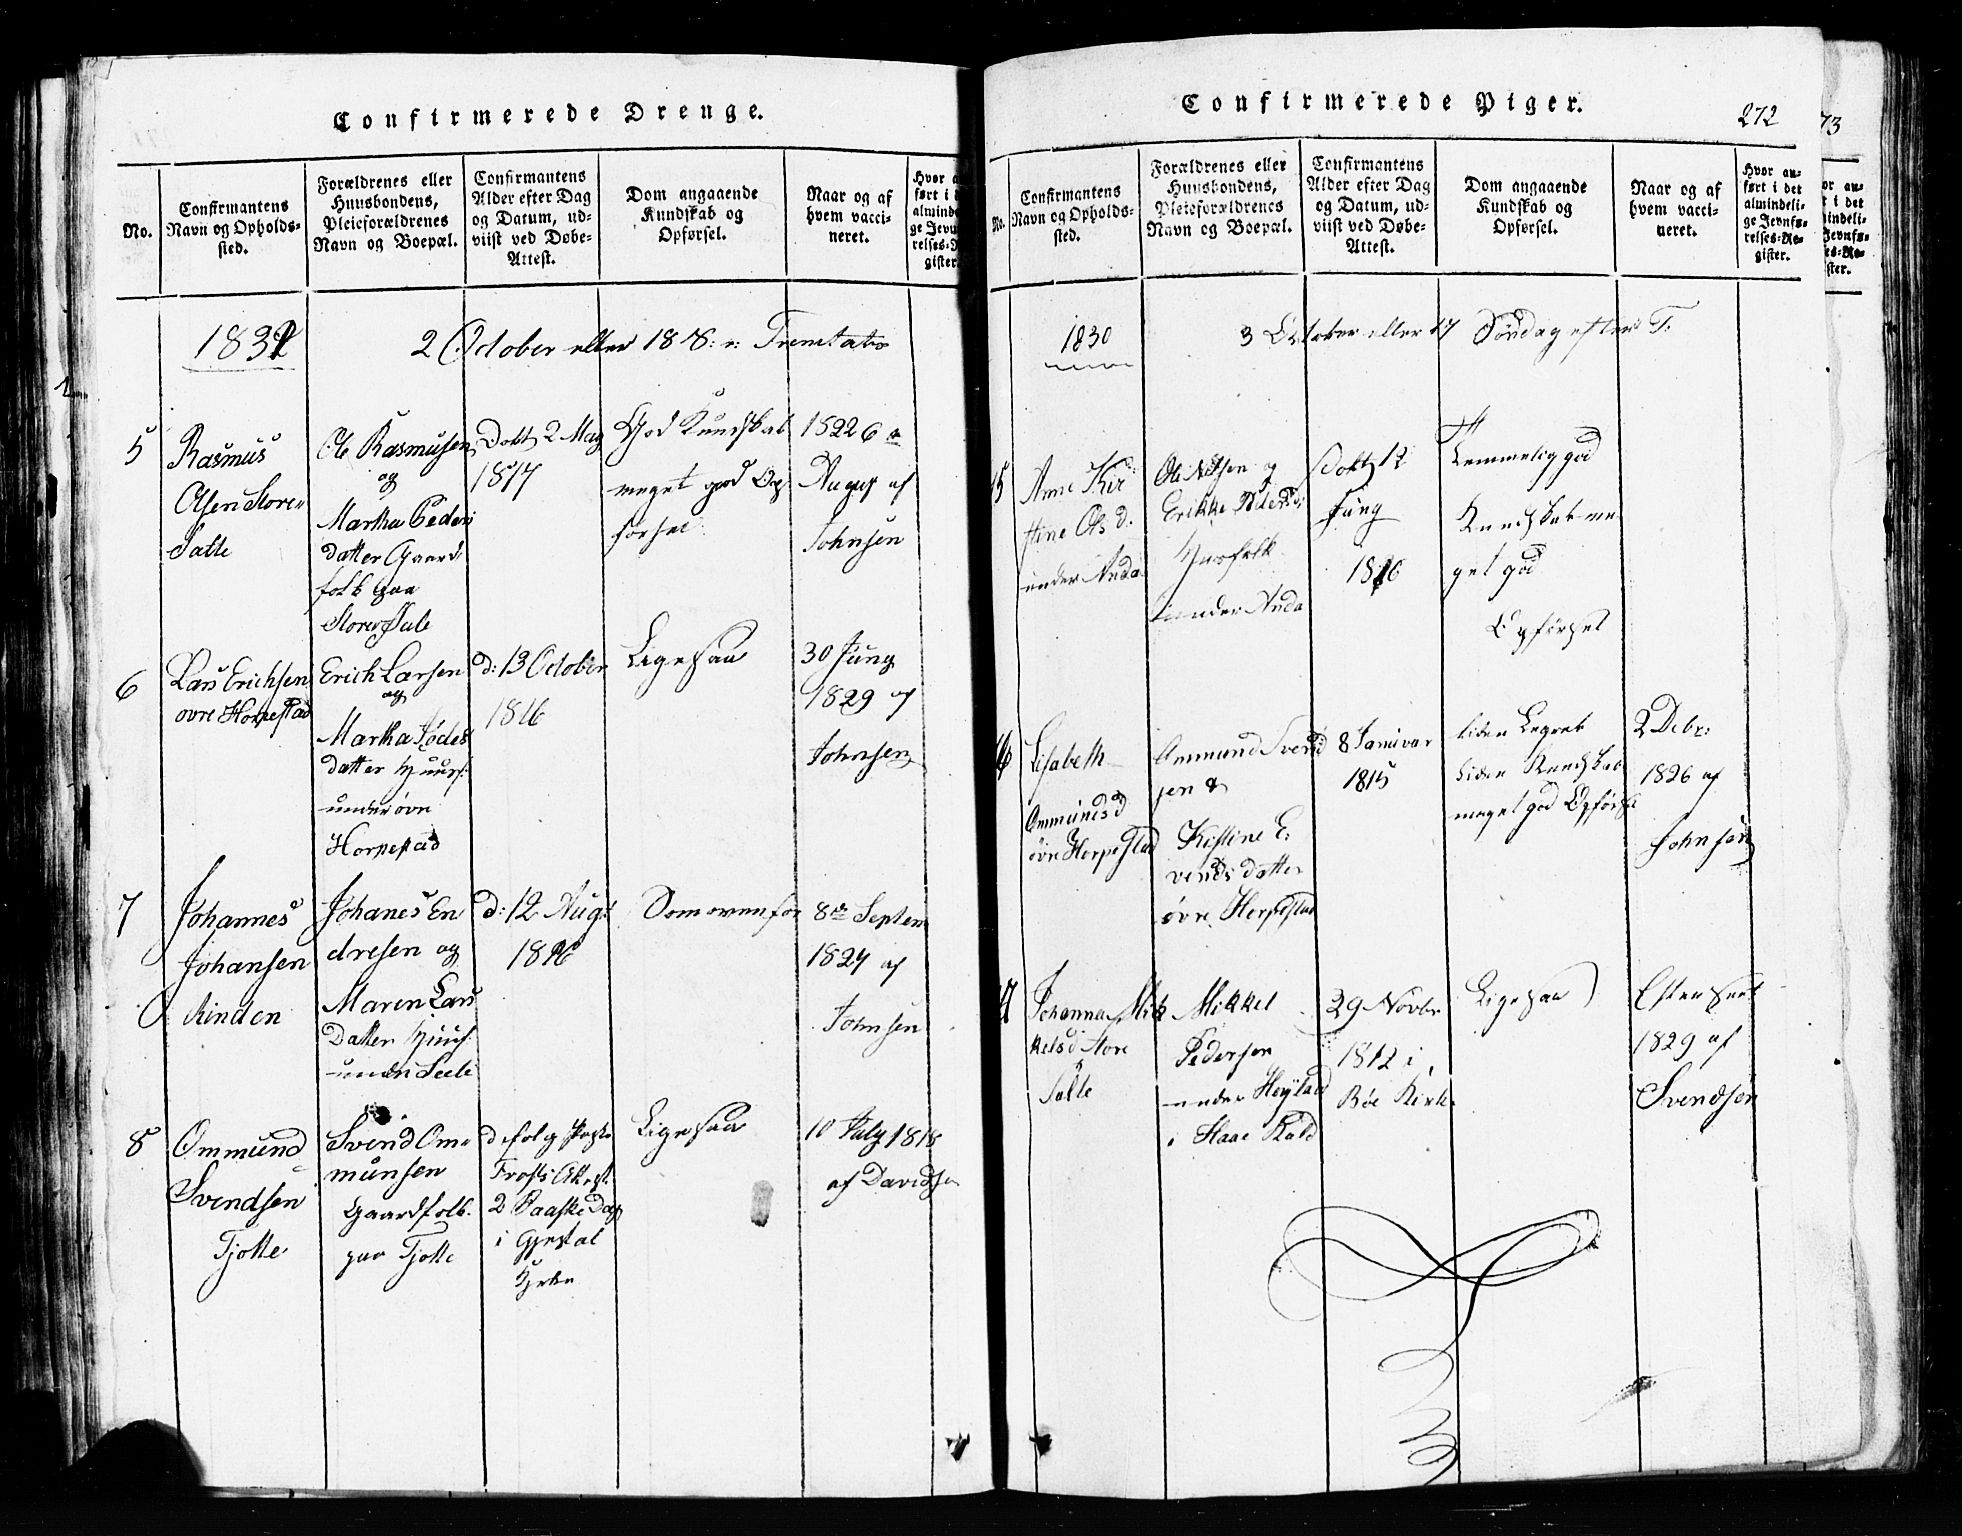 Confirmerede Drenge.
No.
Confirmantens
Navn og Opholds-
sted.
Forældrenes eller
Huusbondens,
Pleieforældrenes
Navn og Boepæl.
Confirmantens
Alder efter Dag
og Datum, ud-
viist ved Døbe-
Attest.
Dom angaaende
Kundskab og
Opførsel.
Naar og af
hvem vacci-
neret.
1831
2 October eller 18
5
Rasmus
Olsen Store
Salte
Ole Rasmusen
og
Martha Peders
datter Gaard
folk paa
Døbt 2 May
1817
God Kundskab
meget god Op
førsel
August af
Johnsen
6
Lars Erichsen
øvre Horpestad
Erich Larsen
og
Martha
datter Huusf.
under øvre
Horpestad
d: 13 October
1816
Ligesaa
30 Juny
1829 af
Johnsen
7
Johannes
Johansen
Rinden
Johanes En
dresen og
Maren Lars
Datter Huusf
under Seele
d: 12 Aug
1816
Som ovenfor
8de Septem
1824 af
Johnsen
8
Ommund
Svendsen
Tjøtte
Svend Om-
munsen
Gaardfolk
paa Tjøtte
2 Paaske Dag
i Gjestal
Ligesaa
10 July 1818
af Davidsen
Confirmerede Piger.
272
No.
Confirmantens
Navn og Opholds-
sted.
Forældrenes eller
Huusbondens,
Pleieforældrenes
Navn og Boepæl.
Confirmantens
Alder efter Dag
og Datum, ud-
viist ved Døbe-
Attest.
Dom angaaende
Kundskab og
Opførsel.
Naar og af
hvem vacci-
neret.
Hvor an-
ført i det
almindeli-
ge Jevnfø-
relses-Re-
gister.
73
1830
3 October eller 17 Søndag efter T.
15
Anne Kir
stine Ols d.
under Anda
Ole Nilsen og
Huusfolk
under Anda
Døbt 12
Juny
1816
Temmelig god
Kundskab me
get god
Opførsel
16
Lisabeth
Ommunds d
øvre Horpestad
Ommund Svend
sen &
Kistine E.
vends datter
øvre Horpestad
8 Januvar
1815
liden Begreb
liden Kundskab
meget god Opførsel
2 Debr:
1826 af
Johnsen
17
Johanna Mik
kelsd Store
Salte
Mikkel
Pedersen
under Høyland
i Haae
29 Novbr
1812 i
Bøe Kirke
Ligesaa
1829 af
Svendsen